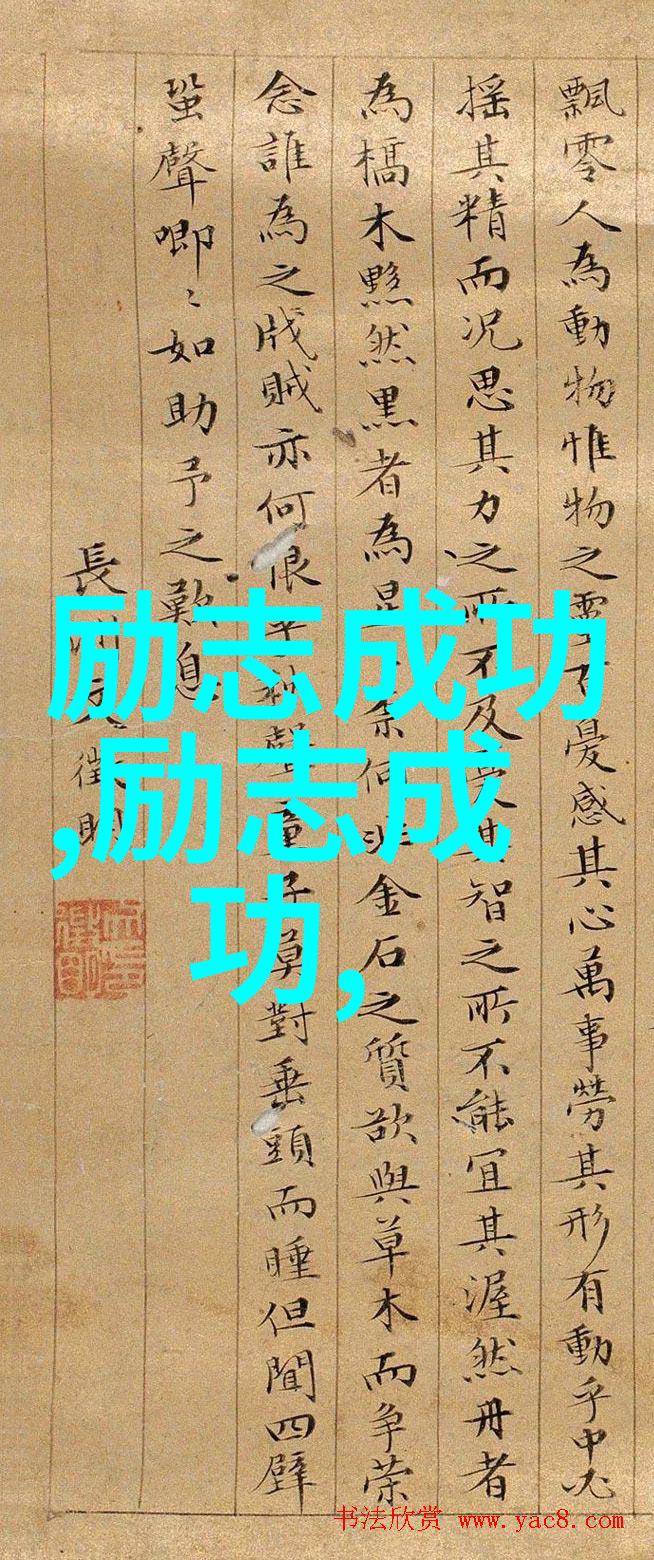 飄零人為動物惟物之靈百憂感其心萬事勞其形有動乎中必
搖其精而況思其力之所不及憂其智之所不能宜其渥然丹者
為槁木黟然黑者為星〻奈何非金石之質欲與草木而争荣
念誰為之戕賊亦何恨乎秋聲童子莫對垂頭而睡但聞四壁
蛩聲唧〻如助予之歎息
長洲文徵明
励志成功
,励志成
功,
书法欣赏 www.yac8.com